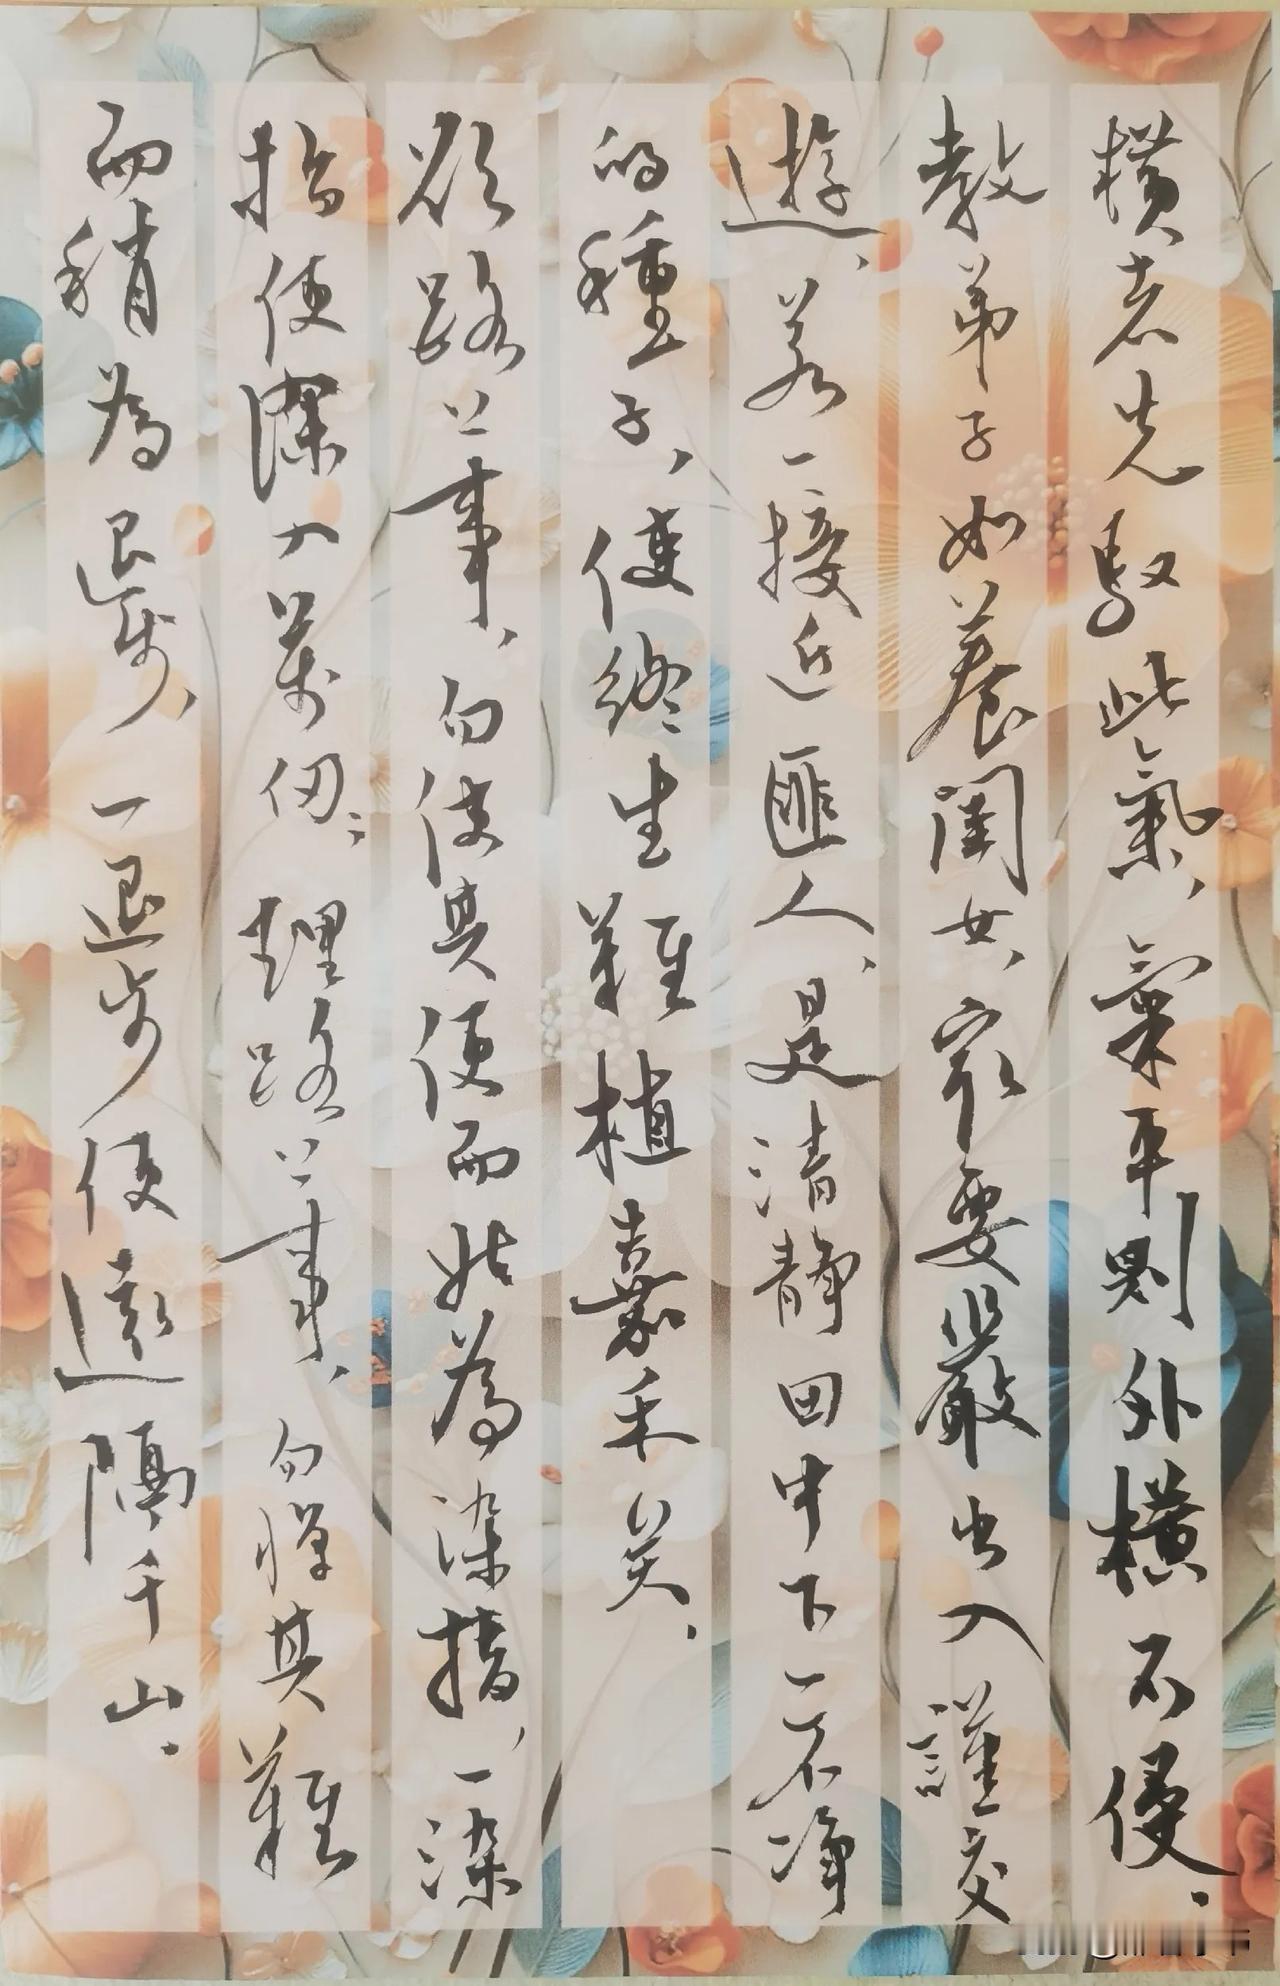 横者先馭此氣、氣平則外横不侵。
教弟子如養閨女、最要嚴出入謹交
遊、若一接近匪人、是清静田中下一不净
的種子、便終生難植嘉禾矣。
欲路上事、勿使其便而姑為染指、一染
指便深入萬仞；理路上事、勿憚其難
而稍為退步、一退步便遠隔千山。